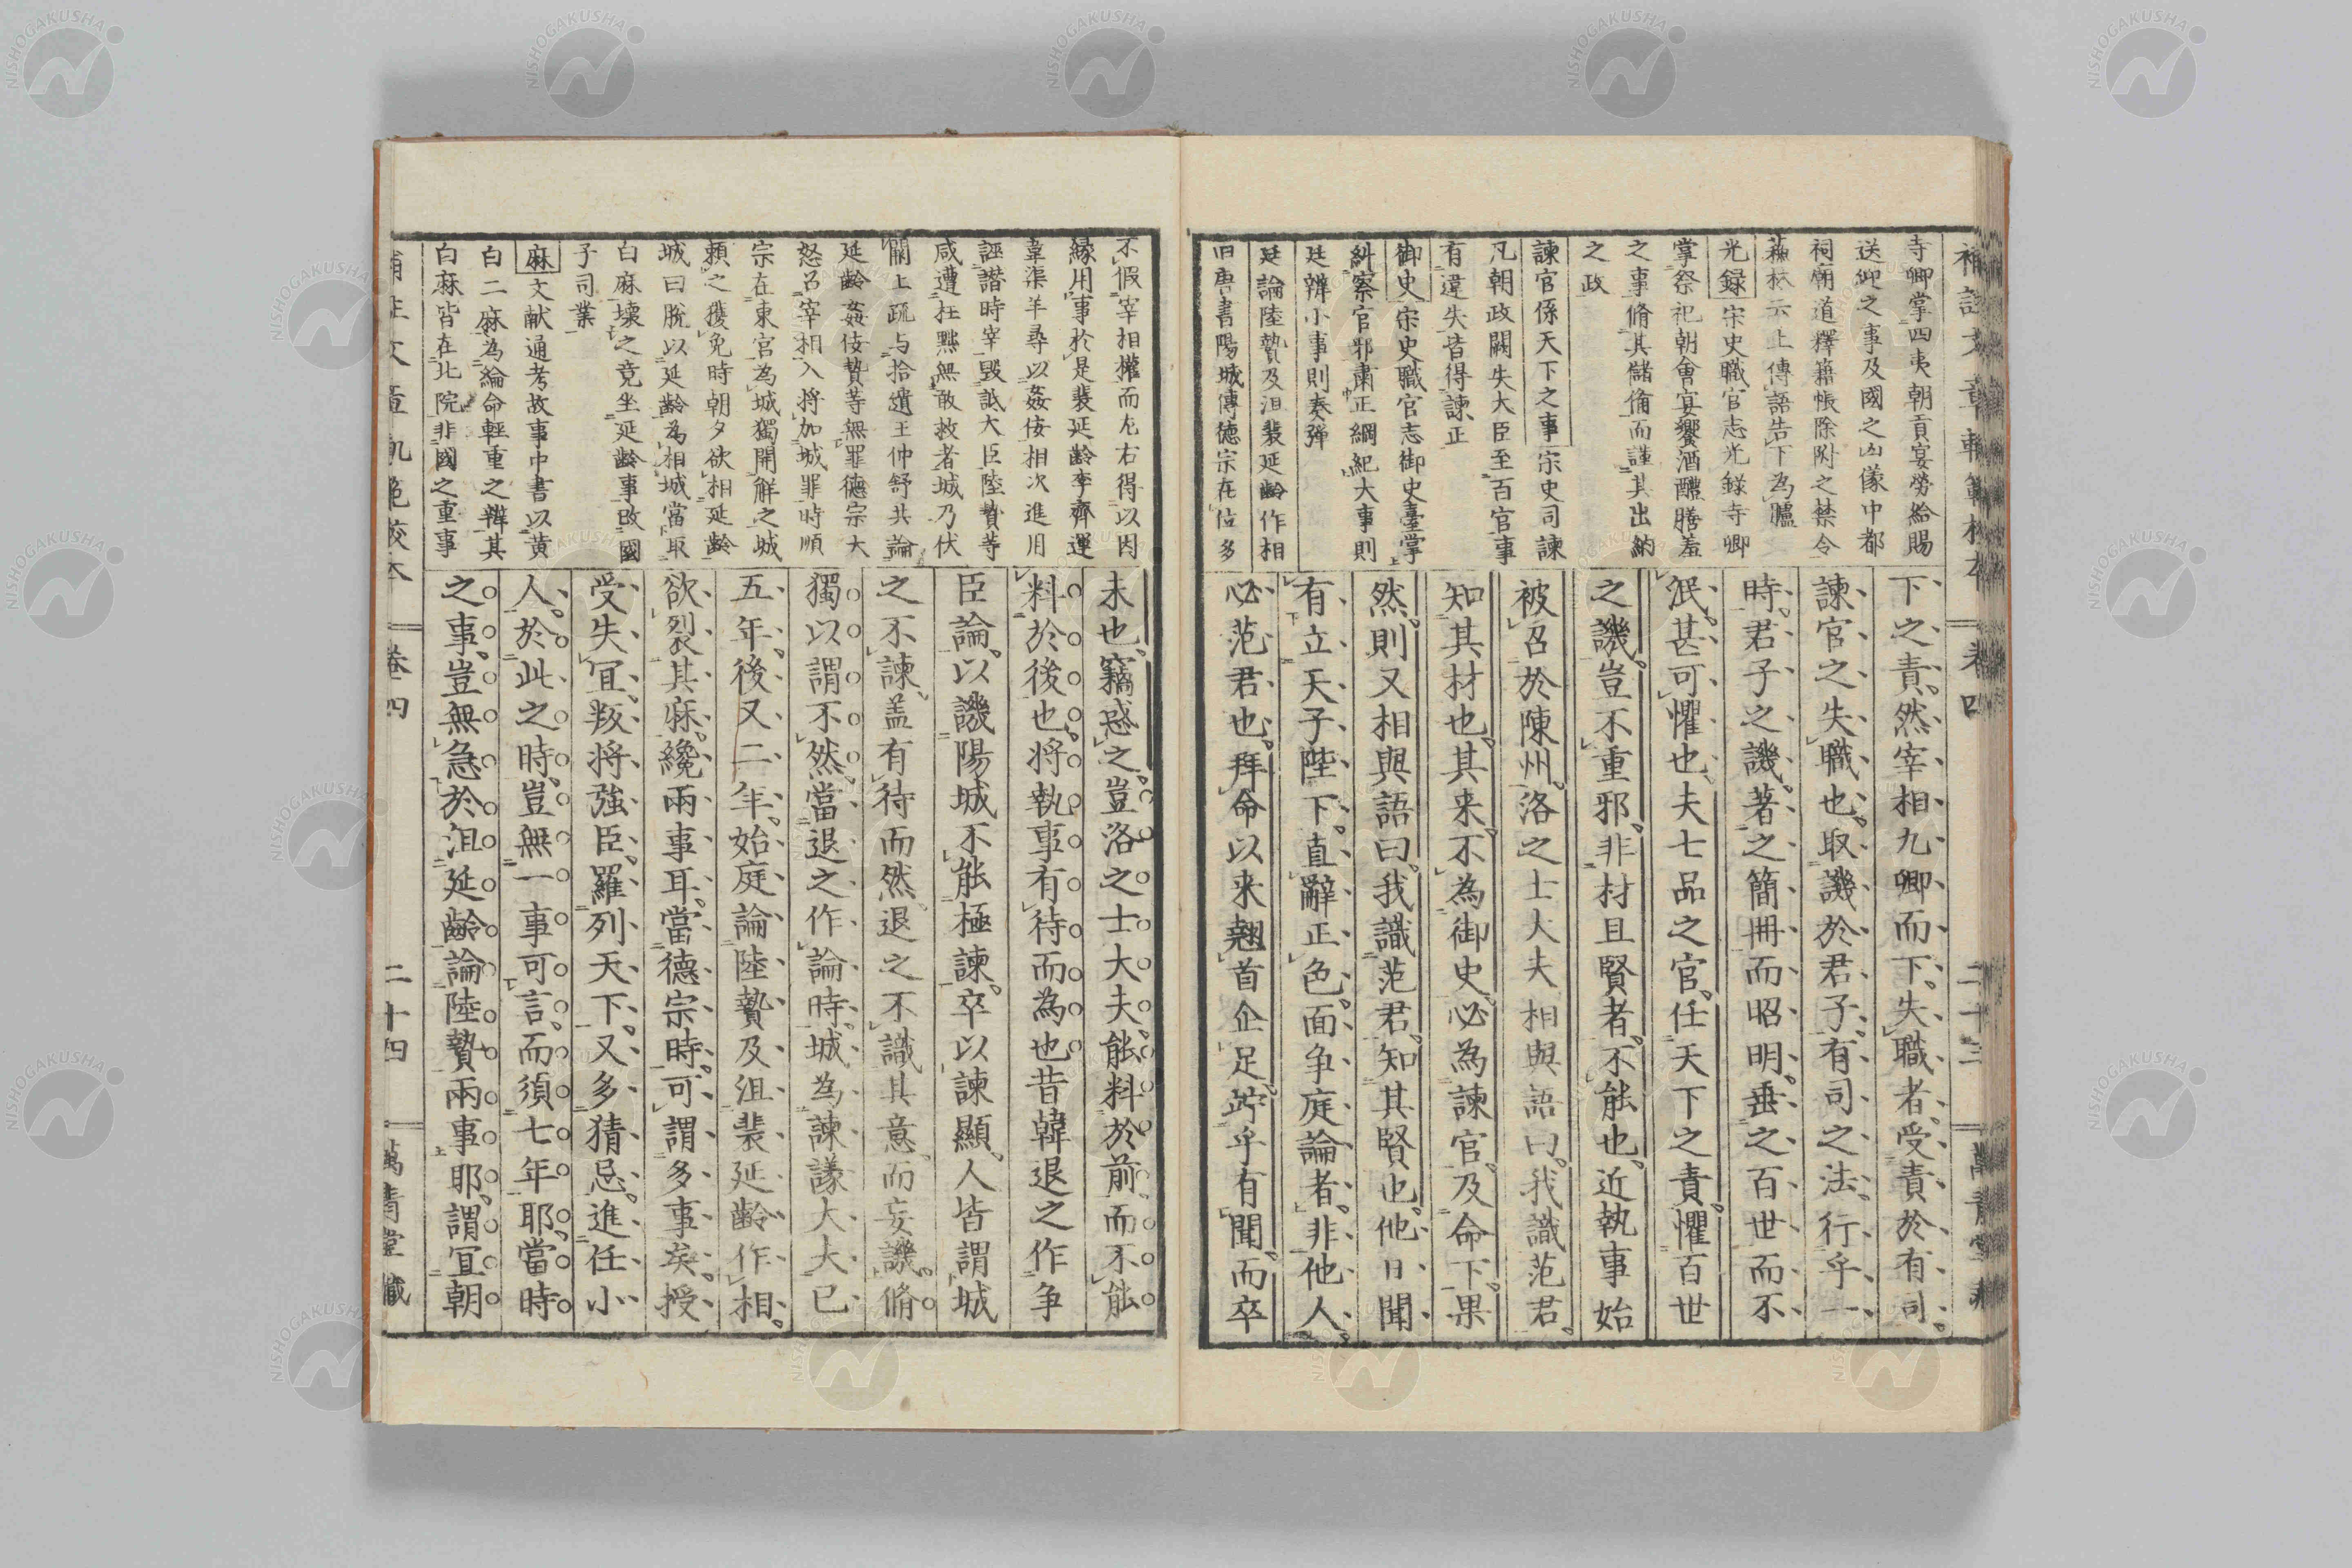 補註文章軌範校本 卷四 二十三
寺卿掌四夷朝貢宴勞給賜
送迎之事及國之凶儀中都
祠廟道釋籍帳除附之禁令
蘓林云上傳語告下為臚
光録宋史職官志光録寺卿
掌祭祀朝會宴饗酒醴膳羞
之事脩其儲備而謹其出納
之政
諫官係天下之事宗史司諫
凡朝政闕失大臣至百官事
有違失皆得諫正
御史宋史職官志御史臺掌
糾察官邪肅正綱紀大事則
廷辨小事則奏彈
廷論陸贄及沮裴延齡作相
旧唐書陽城傳德宗在位多
下之責然宰相九卿而下失職者受責於有司
諫官之失職也取譏於君子有司之法行乎一
時君子之譏著之簡冊而昭明垂之百世而不
泯甚可懼也夫七品之官任天下之責懼百世
之譏豈不重邪非材且賢者不能也近執事始
被召於陳州洛之士大夫相與語曰我識范君
知其材也其来不為御史必為諫官及命下果
然則又相與語曰我識范君知其賢也他日聞
有立天子陛下直辭正色面争庭論者非他人
必范君也拜命以来翹首企足竚乎有聞而卒
不假宰相權而左右得以因
縁用事於是裴延齡李齊運
韋渠羊尋以姦佞相次進用
誣譖時宰毀詆大臣陸贄等
咸遭枉黜無敢救者城乃伏
閤上疏与拾遺王仲舒共論
延齡姦佞贄等無罪德宗大
怒召宰相入将加城罪時順
宗在東宮為城獨開解之城
頼之獲免時朝夕欲相延齡
城曰脫以延齡為相城當取
白麻壞之竟坐延齡事改國
子司業
麻文献通考故事中書以黄
白二麻為綸命輕重之辨其
白麻皆在北院非國之重事
未也竊惑之豈洛之士大夫能料於前而不能
料於後也将執事有待而為也昔韓退之作争
臣論以譏陽城不能極諫卒以諫顯人皆謂城
之不諫盖有待而然退之不識其意而妄譏脩
獨以謂不然當退之作論時城為諫議大夫已
五年後又二年始庭論陸贄及沮裴延齡作相
欲裂其麻纔兩事耳當德宗時可謂多事矣授
受失宜叛将強臣羅列天下又多猜忌進任小
人於此之時豈無一事可言而須七年耶當時
之事豈無急於沮延齡論陸贄兩事耶謂宜朝
補註文章軌範校本 卷四 二十四 萬青堂藏